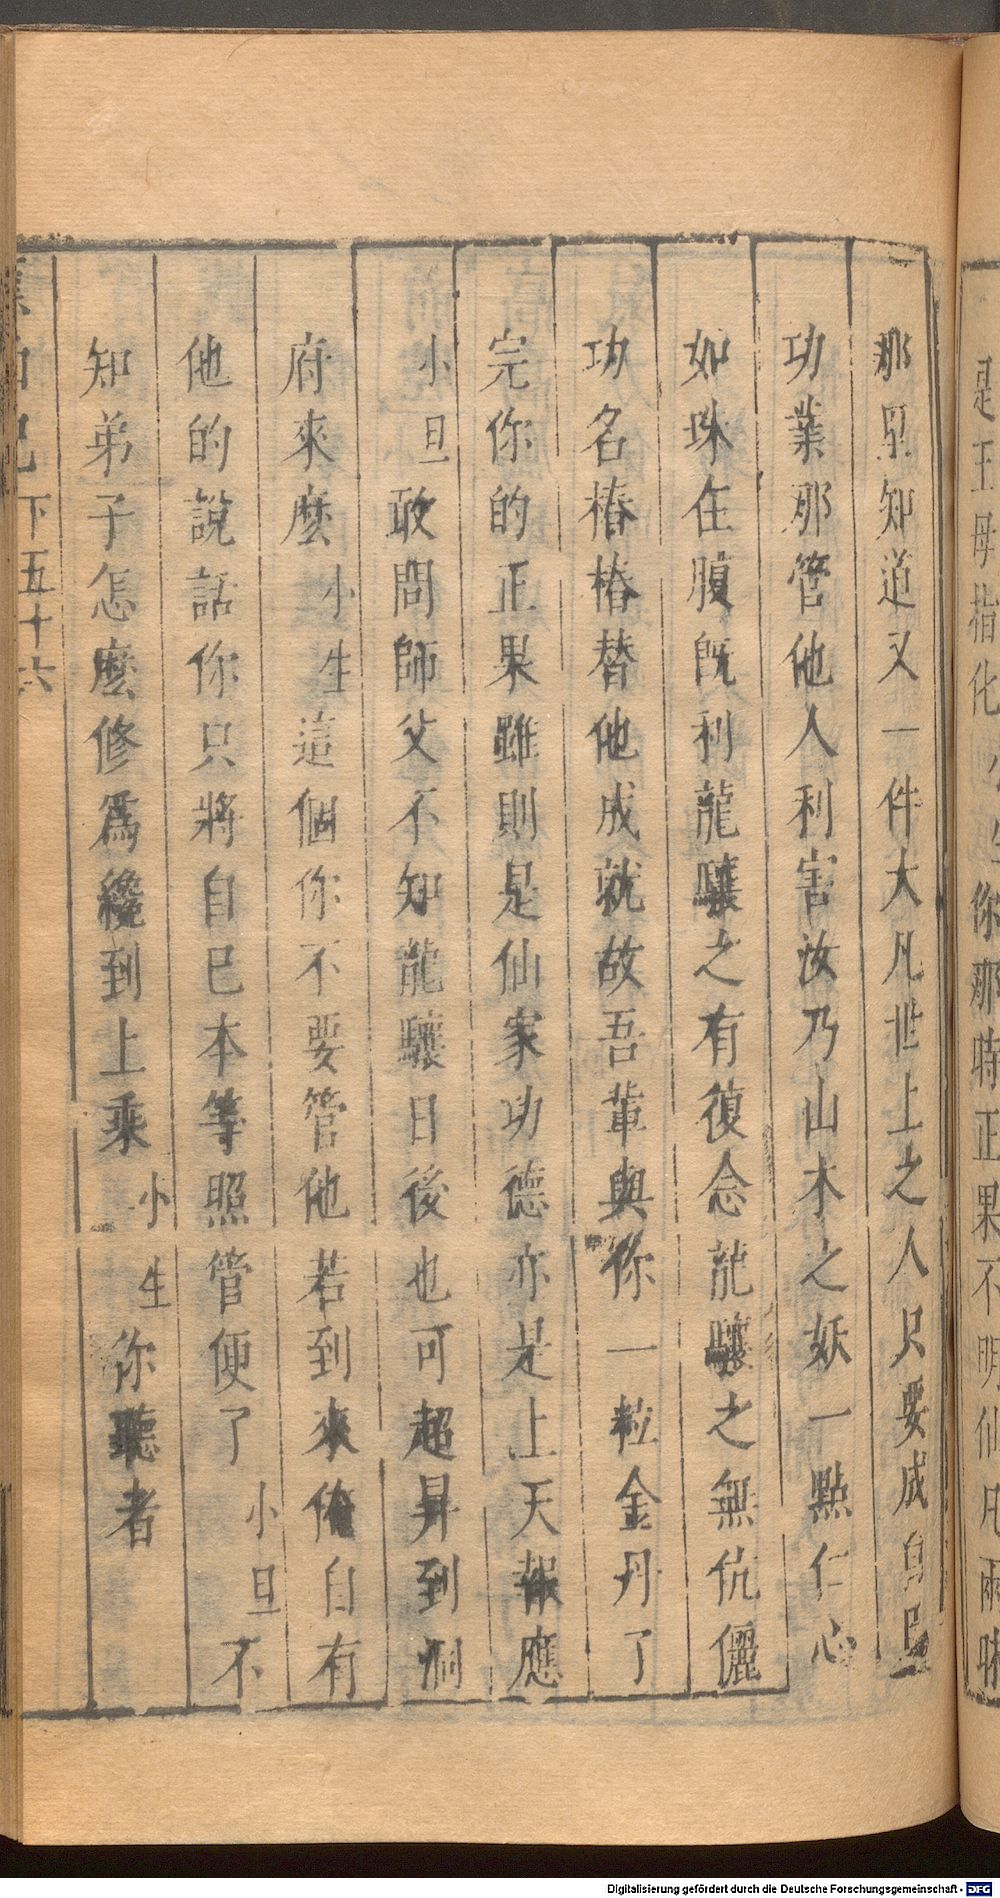 是王母指化 小生 你那時正果不明仙凡兩
那里知道又一件大凡世上之人只要成自己
功業那管他人利害汝乃山木之妖一點仁心
如珠在腹既利龍驤之有復念龍驤之無伉儷
功名樁樁替他成就故吾輩與你一粒金丹了
完你的正果雖則是仙家功德亦是上天報應
小旦 敢問師父不知龍驤日後也可超昇到洞
府來麼 小生 這個你不要管他若到來脩自有
他的說話你只將自已本等照管便了 小旦 不
知弟子怎麼修爲纔到上乘 小生 你聽者
下五十六
Digitalisierung gefördert durch die Deutsche Forschungsgemeinschaft - DFG